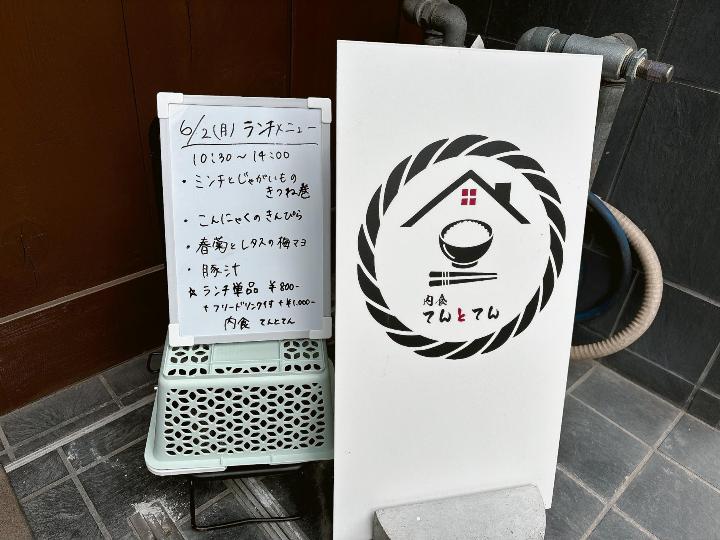 6/2(月) ランチメニュー
10:30〜14:00
・ミンチとじゃがいもの
きつね巻
・こんにゃくのきんぴら
・春菊とレタスの梅マヨ
・豚汁
☆ランチ単品 ¥800-
+フリードリンク付 +¥1,000-
内食 てんとてん
内食
てんとてん